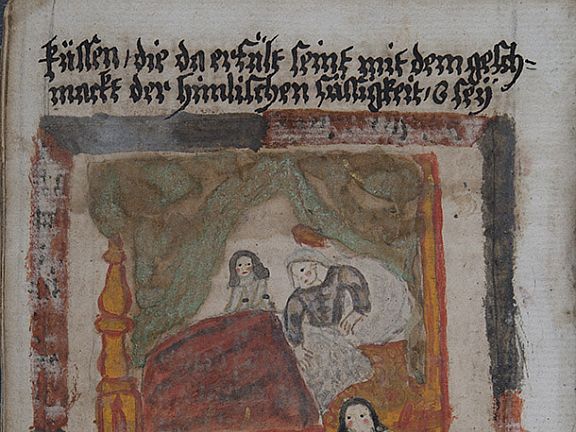 küssen / die da erfült seint mit dem gesch=
mackt der himlischen süssigkeit / O sey